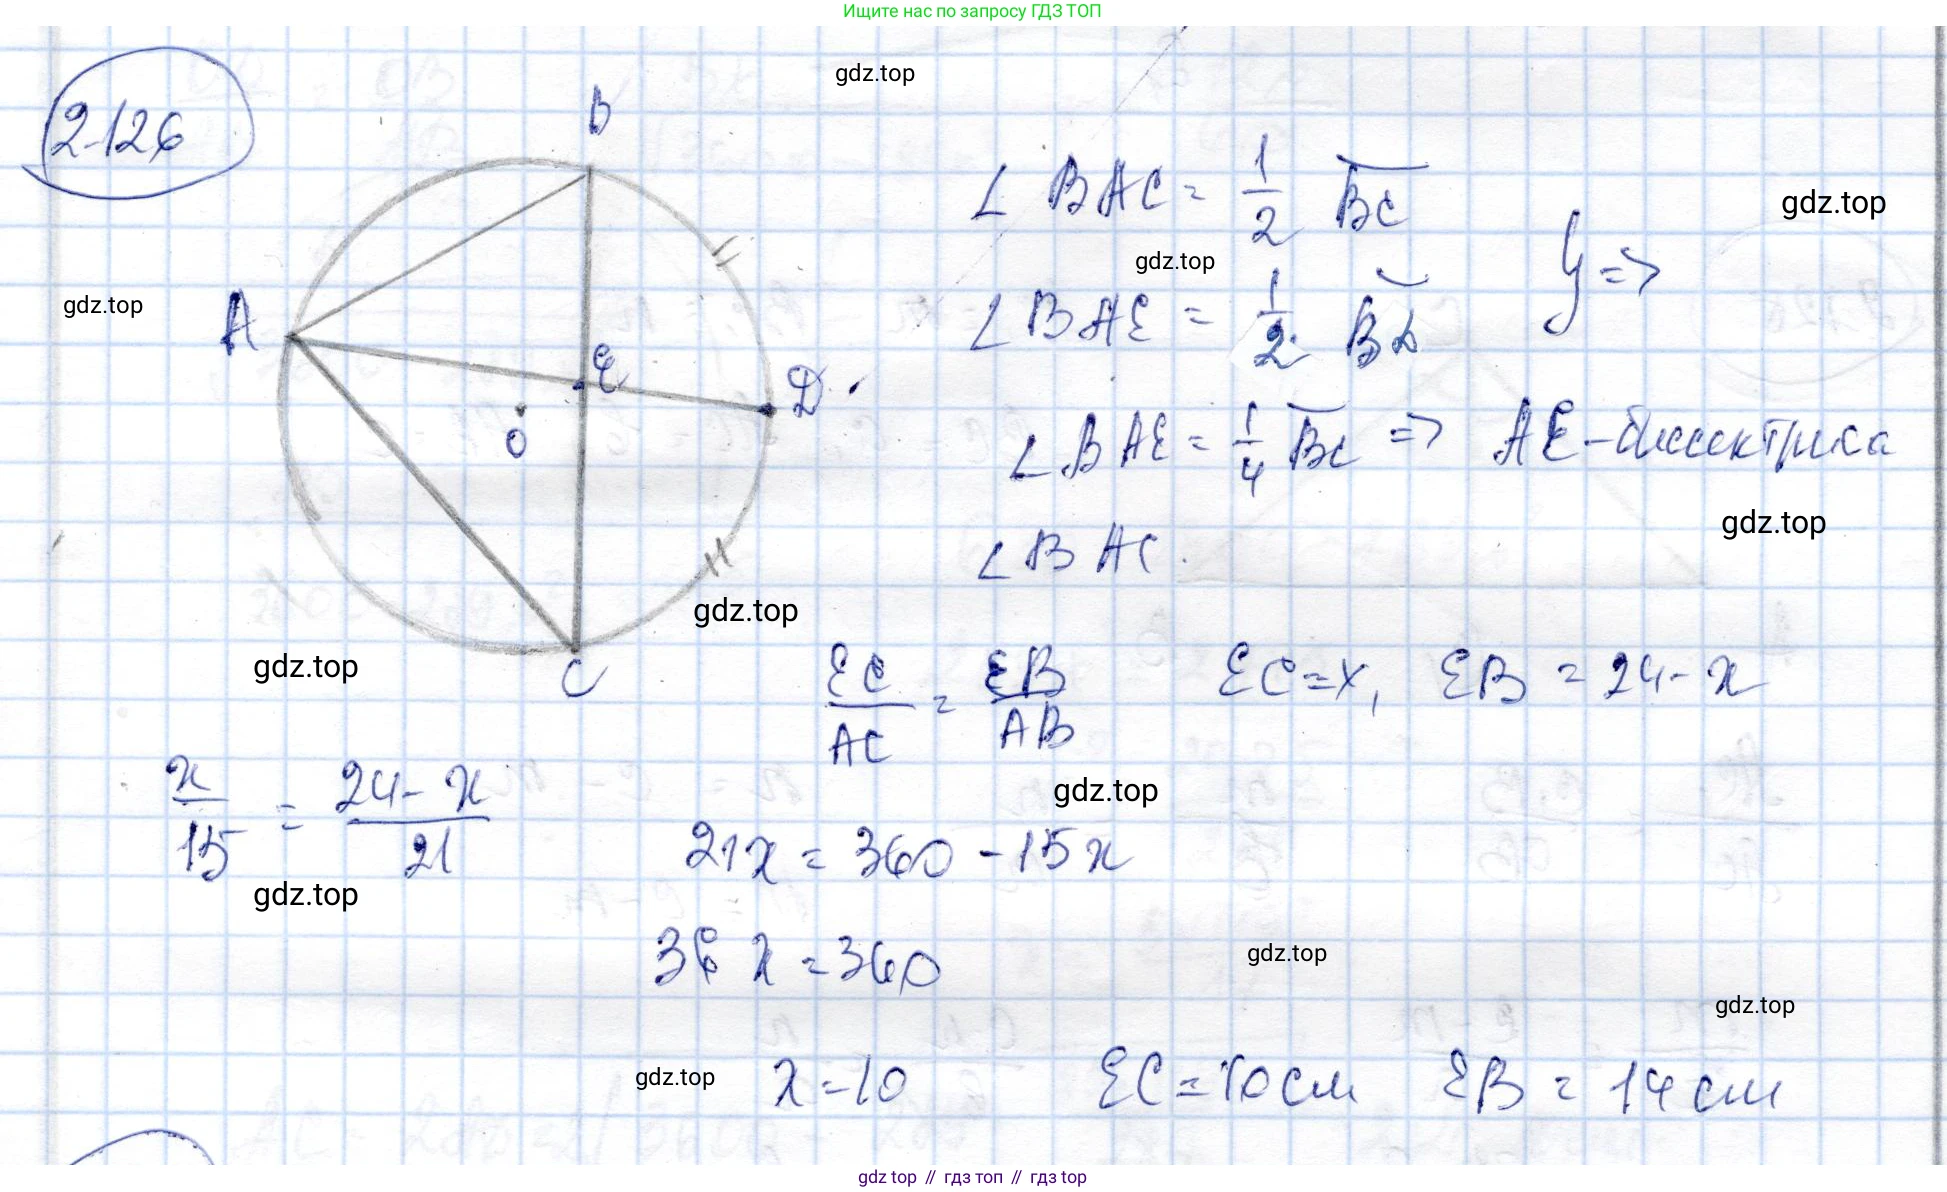 Ищите нас по запросу ГДЗ ТОП
2-126
gdz.top
B
∠ BAC = 1/2 BC
gdz.top
gdz.top
A
gdz.top
∠ BAE = 1/2 BD
} =>
E
D
O
∠ BAE = 1/4 BC => AE - биссектриса
gdz.top
∠ BAC
gdz.top
gdz.top
C
EC/AC = EB/AB
EC = x, EB = 24 - x
gdz.top
x/15 = 24 - x/21
21x = 360 - 15x
gdz.top
36x = 360
gdz.top
gdz.top
gdz.top
x = 10
EC = 10 см EB = 14 см
gdz.top // гдз топ // гдз top